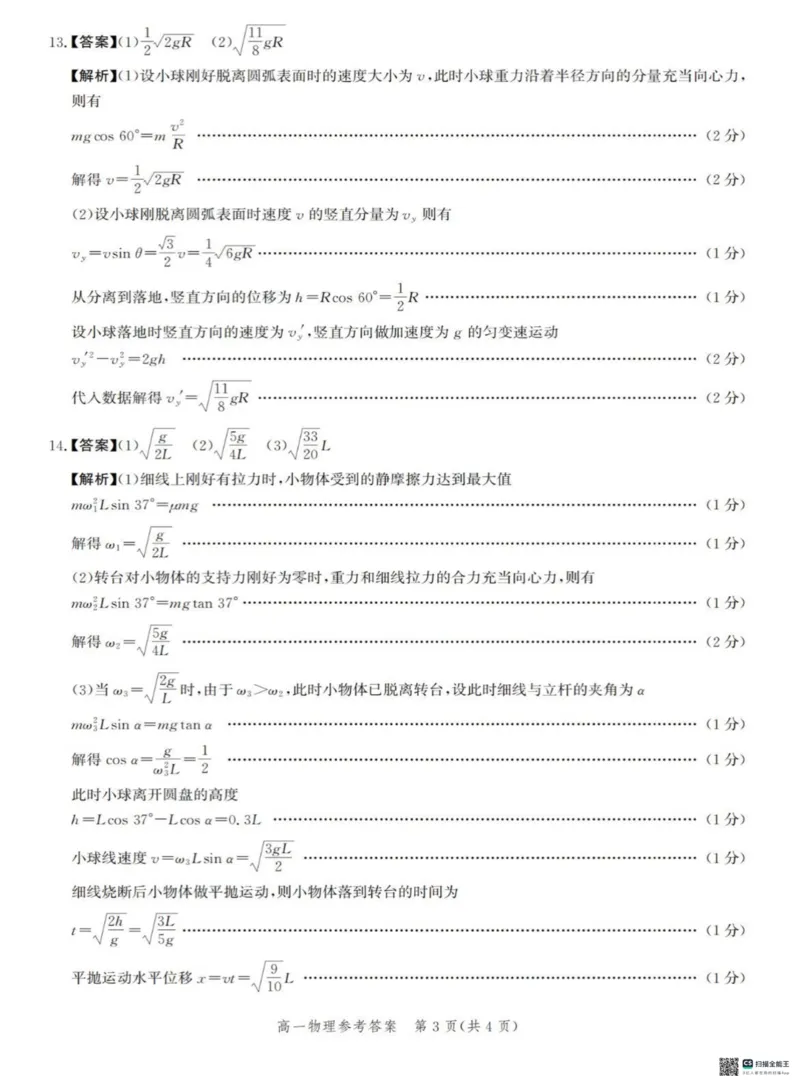 13.【答案】(1)\frac{1}{2}\sqrt{2gR} (2)\sqrt{\frac{11}{8}gR}
【解析】(1)设小球刚好脱离圆弧表面时的速度大小为 v,此时小球重力沿着半径方向的分量充当向心力,
则有
mgcos 60°=m\frac{v^2}{R} ……(2 分)
解得 v=\frac{1}{2}\sqrt{2gR} ……(2 分)
(2)设小球刚脱离圆弧表面时速度 v 的竖直分量为 v_y 则有
v_y=vsin θ=\frac{\sqrt{3}}{2}v=\frac{1}{4}\sqrt{6gR} ……(1 分)
从分离到落地,竖直方向的位移为 h=Rcos 60°=\frac{1}{2}R ……(1 分)
设小球落地时竖直方向的速度为 v_y′,竖直方向做加速度为 g 的匀变速运动
v_y′^2-v_y^2=2gh ……(2 分)
代入数据解得 v_y′=\sqrt{\frac{11}{8}gR} ……(2 分)
14.【答案】(1)\sqrt{\frac{g}{2L}} (2)\sqrt{\frac{5g}{4L}} (3)\sqrt{\frac{33}{20}}L
【解析】(1)细线上刚好有拉力时,小物体受到的静摩擦力达到最大值
mω_1^2Lsin 37°=μmg ……(1 分)
解得 ω_1=\sqrt{\frac{g}{2L}} ……(1 分)
(2)转台对小物体的支持力刚好为零时,重力和细线拉力的合力充当向心力,则有
mω_2^2Lsin 37°=mgtan 37° ……(1 分)
解得 ω_2=\sqrt{\frac{5g}{4L}} ……(2 分)
(3)当 ω_3=\sqrt{\frac{2g}{L}}时,由于 ω_3>ω_2,此时小物体已脱离转台,设此时细线与立杆的夹角为 α
mω_3^2Lsin α=mgtan α ……(1 分)
解得 cos α=\frac{g}{ω_3^2L}=\frac{1}{2} ……(1 分)
此时小球离开圆盘的高度
h=Lcos 37°-Lcos α=0.3L ……(1 分)
小球线速度 v=ω_3Lsin α=\sqrt{\frac{3gL}{2}} ……(1 分)
细线烧断后小物体做平抛运动,则小物体落到转台的时间为
t=\sqrt{\frac{2h}{g}}=\sqrt{\frac{3L}{5g}} ……(1 分)
平抛运动水平位移 x=vt=\sqrt{\frac{9}{10}}L ……(1 分)
高一物理参考答案 第 3 页(共 4 页)
CS 扫描全能王